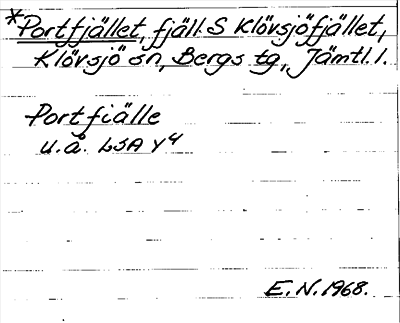 *Portfjället, fjäll S Klövsjöfjället,
Klövsjö sn, Bergs tg, Jämtl. l.
Portfiälle
u.å. LSA Y4
E.N. 1968.